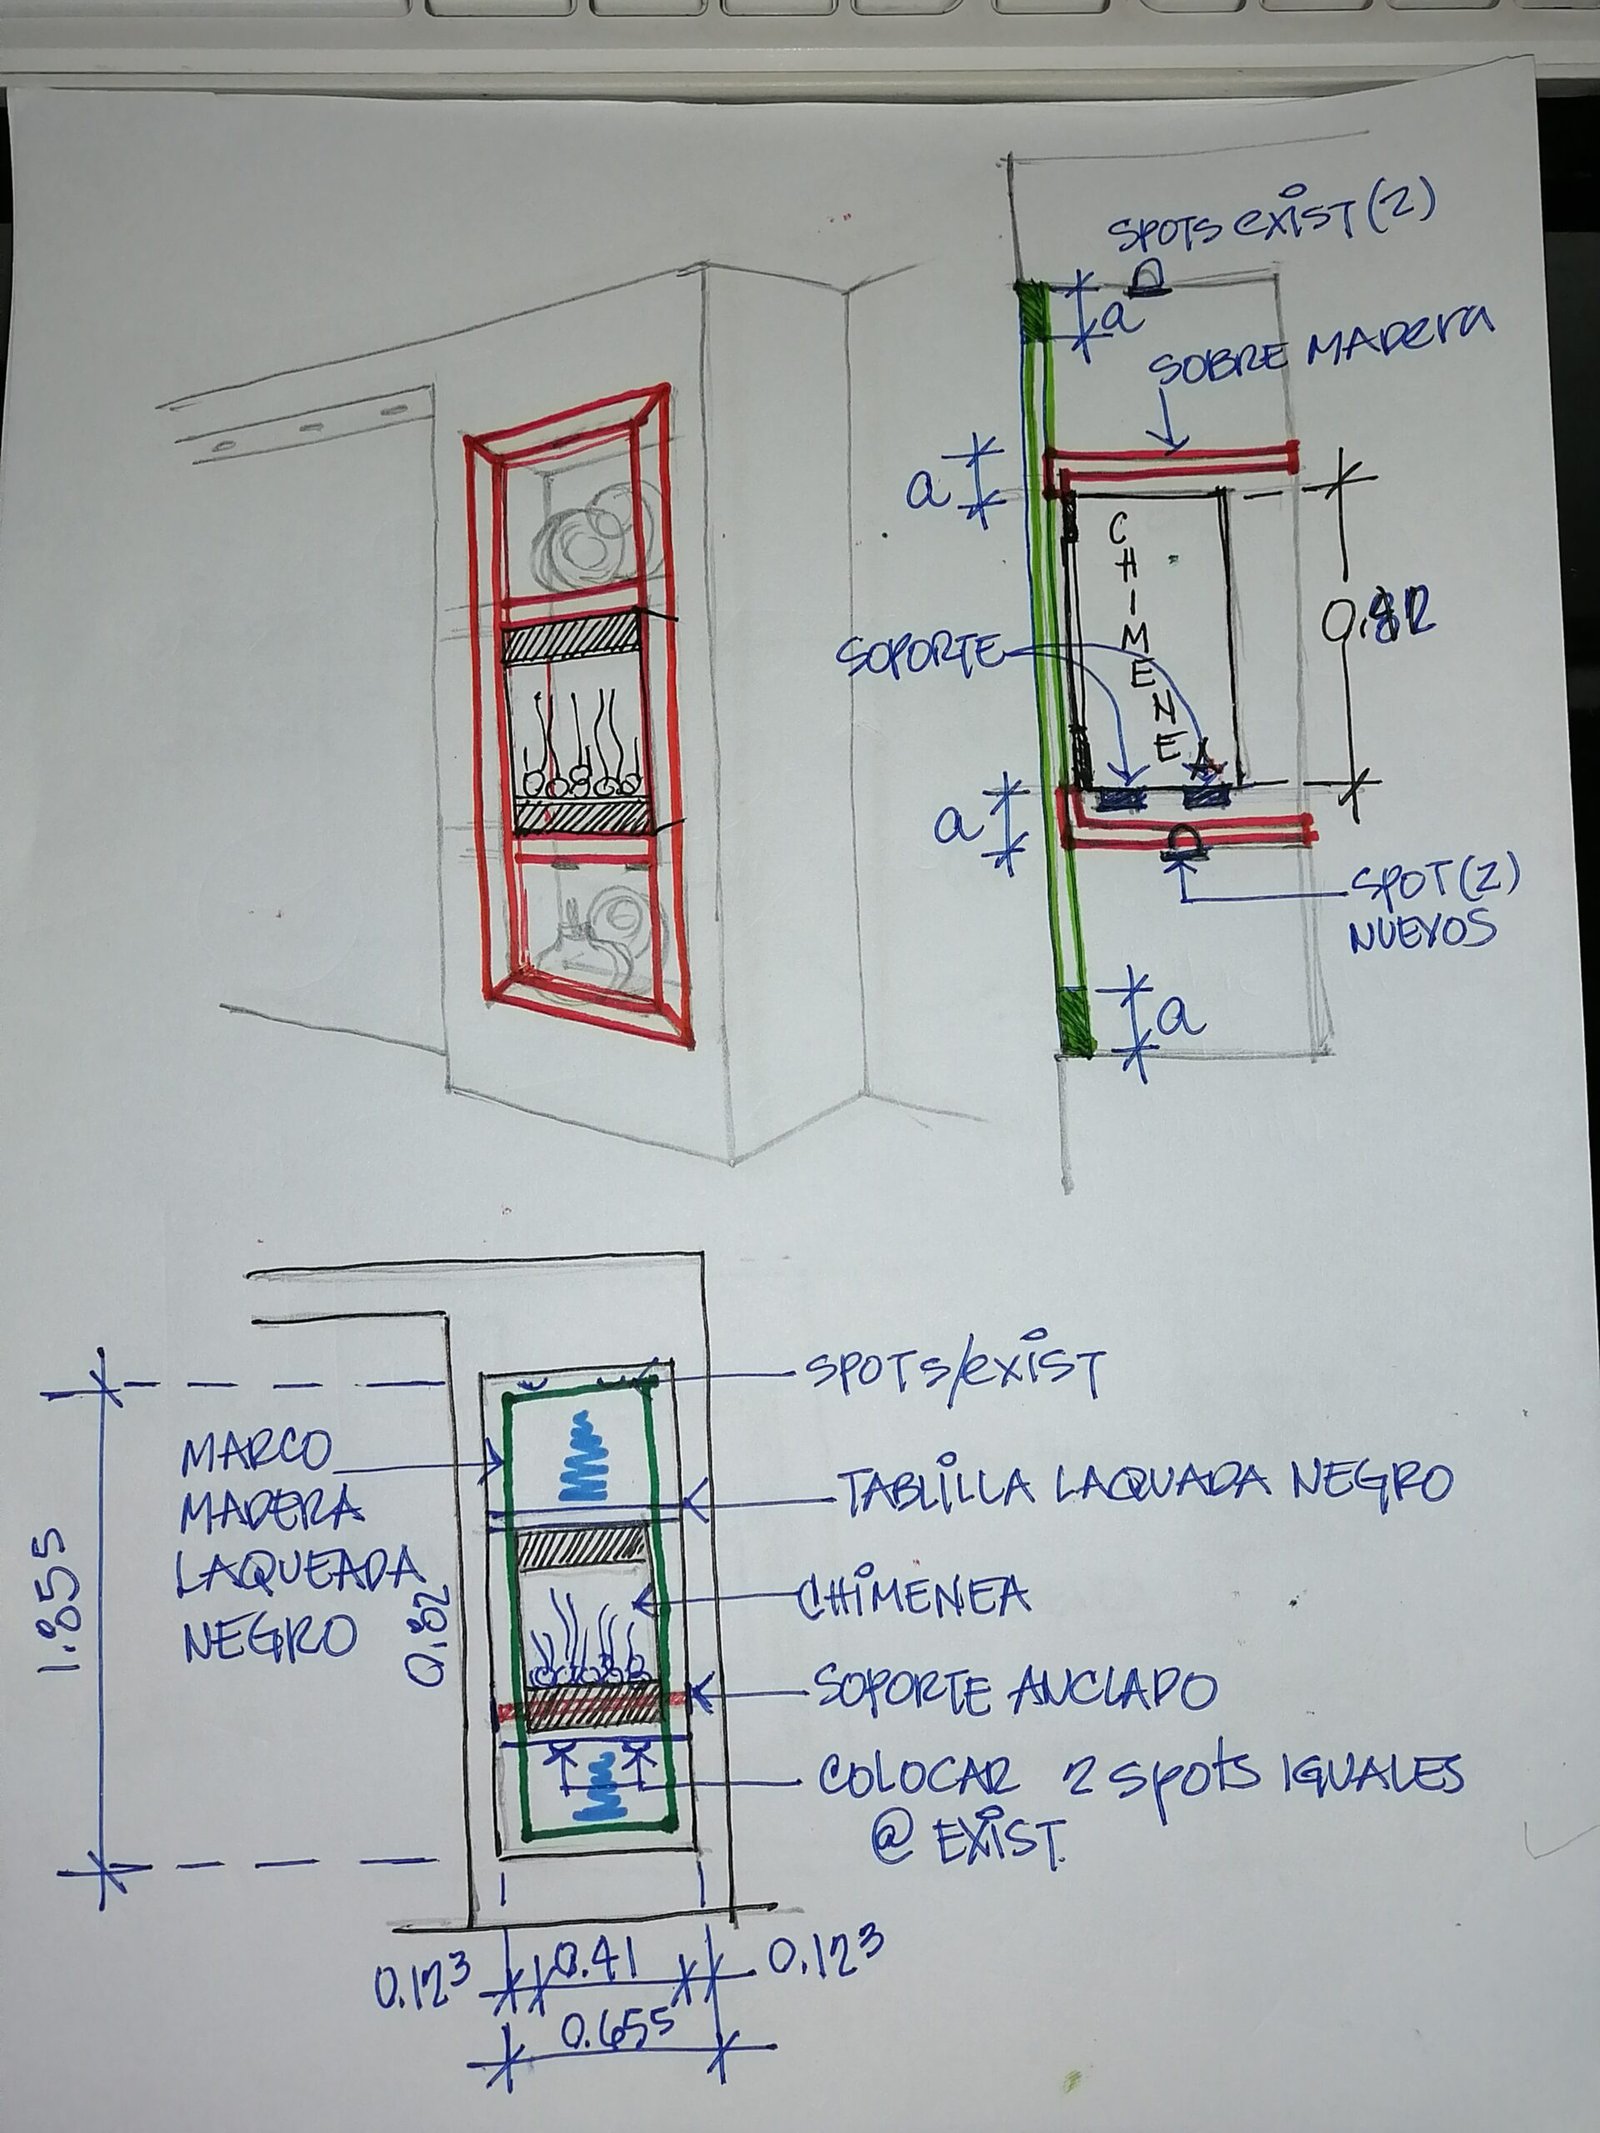 SPOTS EXIST (2)
a
SOBRE MADERA
a
CHIMENEA
0.82
SOPORTE
a
SPOT (2)
NUEVOS
a
SPOTS/EXIST
MARCO
MADERA
LAQUEADA
NEGRO
TABLILLA LAQUADA NEGRO
1.855
0.82
CHIMENEA
SOPORTE ANCLADO
COLOCAR 2 SPOTS IGUALES
@ EXIST.
0.123 0.41 0.123
0.655